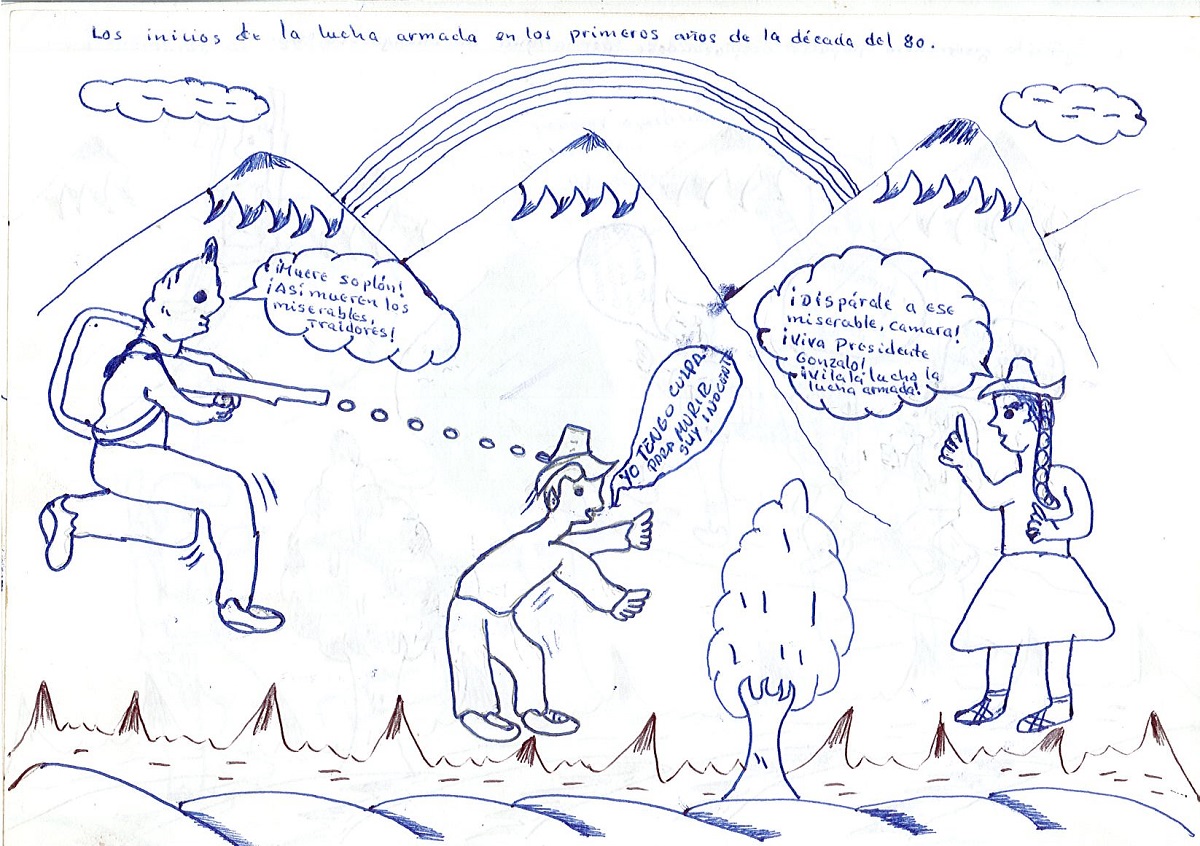 Los inicios de la lucha armada en los primeros años de la década del 80.
¡Muere soplón!
¡Así mueren los
miserables,
Traidores!
YO TENGO CULPA
PARA MURIR
SUY INOCENTE
¡Dispárale a ese
miserable, camara!
¡Viva Presidente
Gonzalo!
¡Vila la lucha la
lucha armada!